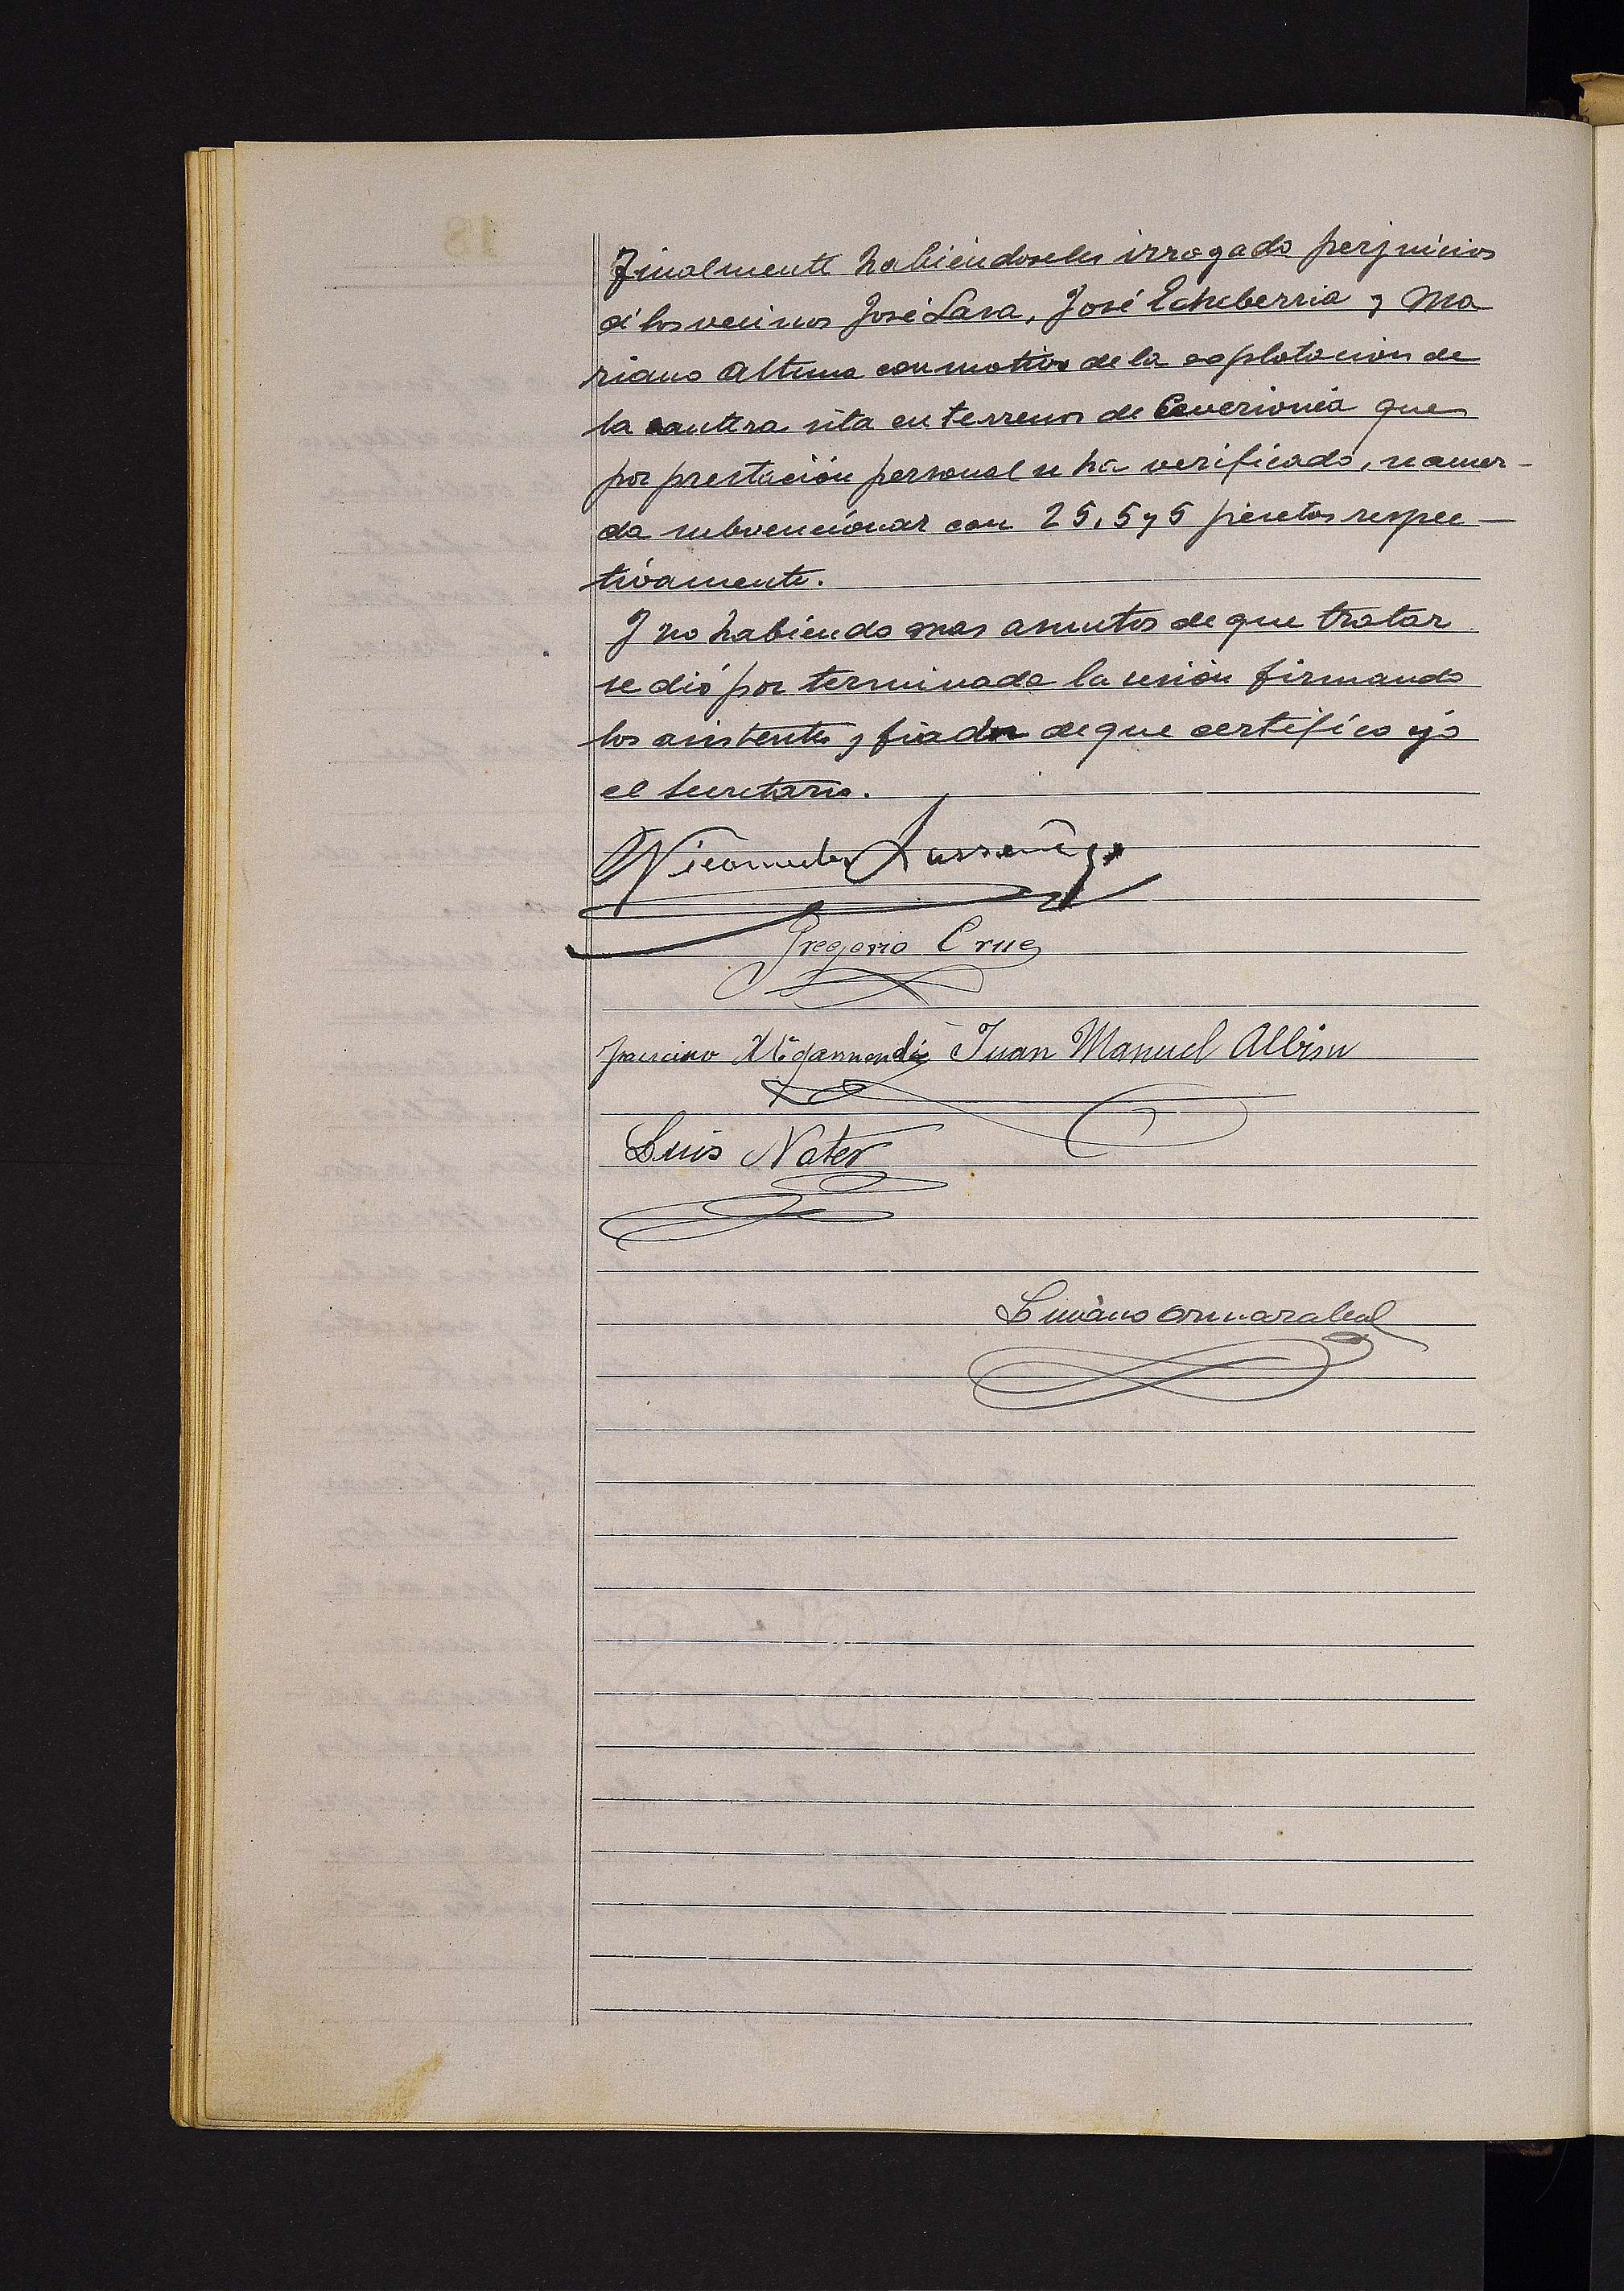 Finalmente habiéndoseles irrogado perjuicios
á los vecinos José Lasa, José Echeberria y Ma
riano Altuna con motivo de la explotacion de
la cantera sita en terrenos de que
por prestación personal se ha verificado, se acuer-
da subvencionar con 25, 5 y 5 pesetas respec-
tivamente.
Y no habiendo mas asuntos de que tratar
se dió por terminada la sesión firmando
los asistentes y fiador de que certifico yó
el Secretario.
Nicomedes Larrañaga
Gregorio Cruz
Juan Manuel Albisu
Luis Noter
Luciano